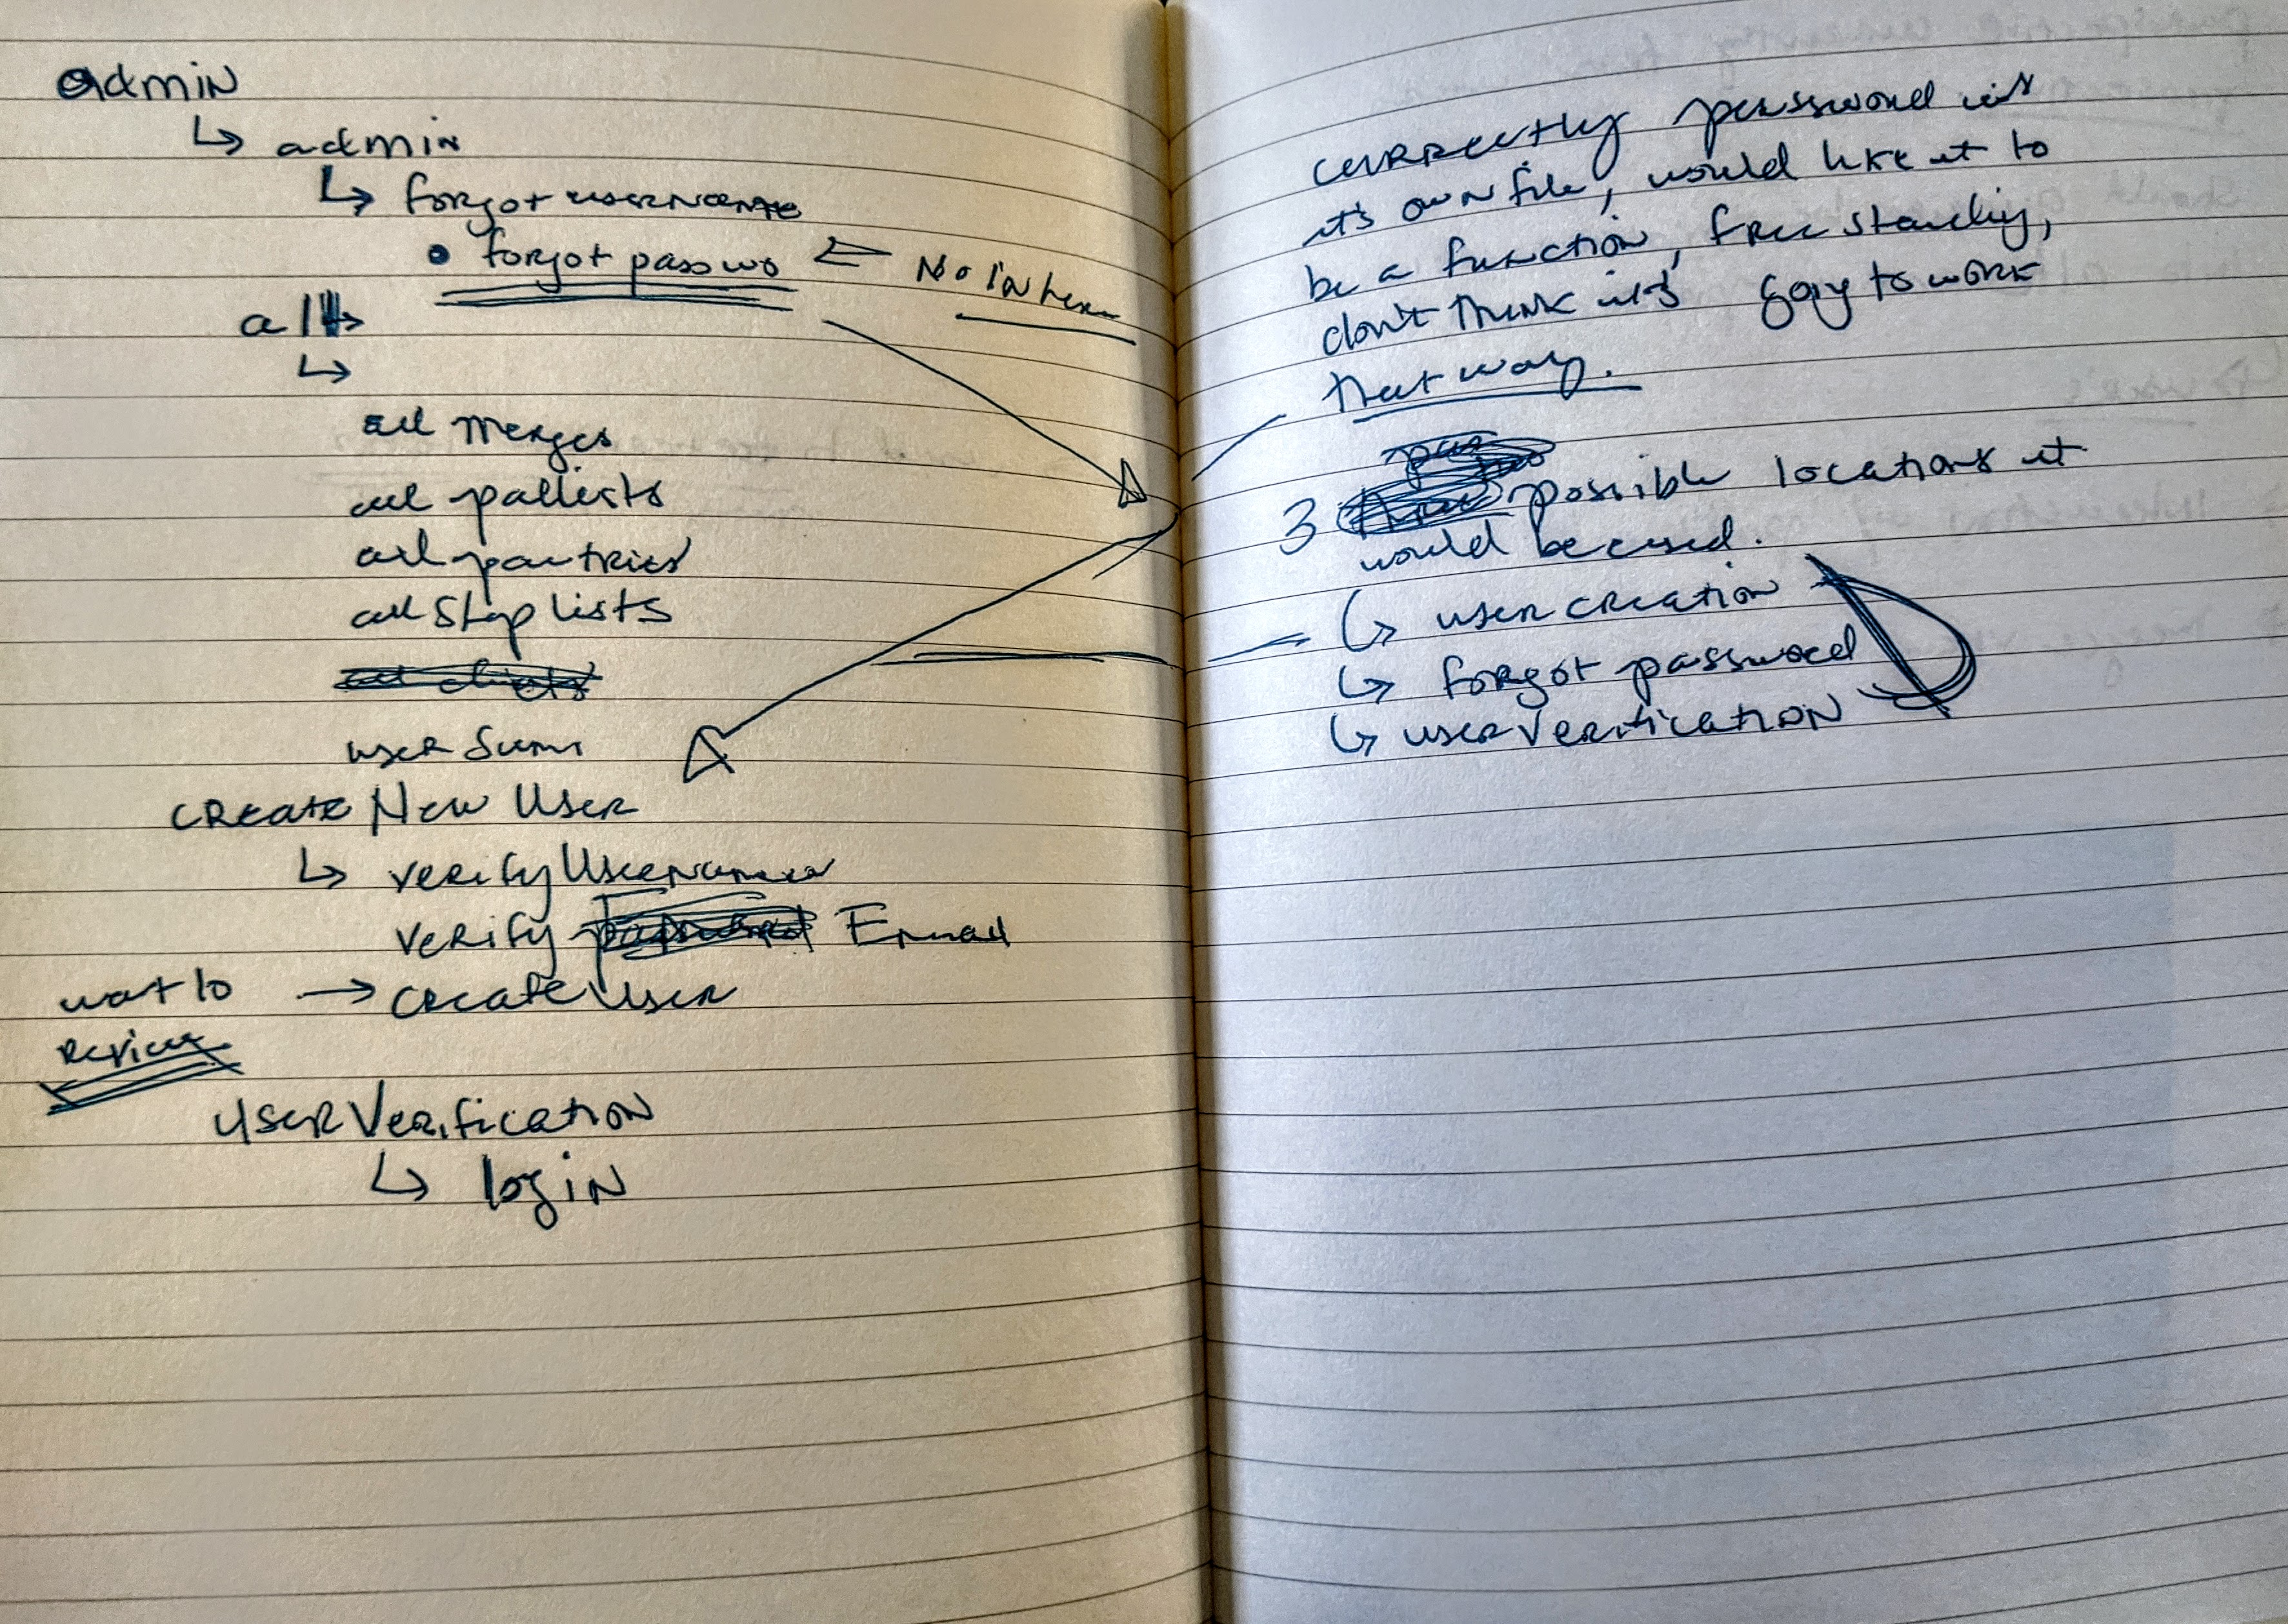 admin
↳ admin
↳ forgot username
• forgot passwo ⇐ No in here
all
↳
all merges
all pallists
all pantries
all shop lists
user sums
CREATE New User
↳ verify Username
verify Email
want to → create User
Review
User Verification
↳ login
currectly password is
it's own file, would like it to
be a function, free standing,
don't think it's going to work
that way.
3 possible locations it
would be used.
↳ user creation
↳ forgot password
↳ user verification